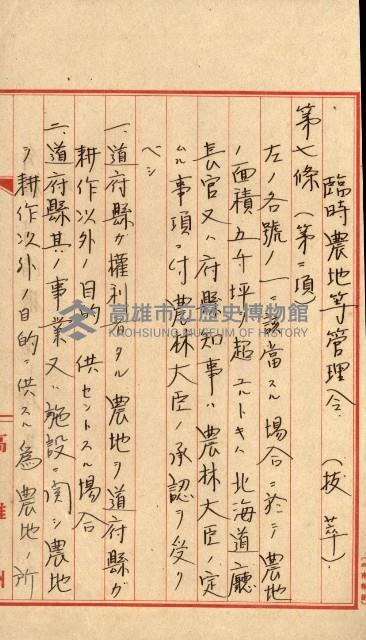 臨時農地等管理令（抜萃）
第七條（第二項）
左ノ各號ノ一ニ該當スル場合ニ於テ農地
ノ面積五千坪ヲ超ユルトキハ北海道廳
長官又ハ府縣知事ハ農林大臣ノ定
ムル事項ニ付農林大臣ノ承認ヲ受ク
ベシ
一、道府縣ガ權利者タル農地ヲ道府縣ガ
耕作以外ノ目的ニ供セントスル場合
二、道府縣其ノ事業又ハ施設ニ関シ農地
ヲ耕作以外ノ目的ニ供スル為農地ノ所
高雄州
高雄市立歷史博物館
KAOHSIUNG MUSEUM OF HISTORY